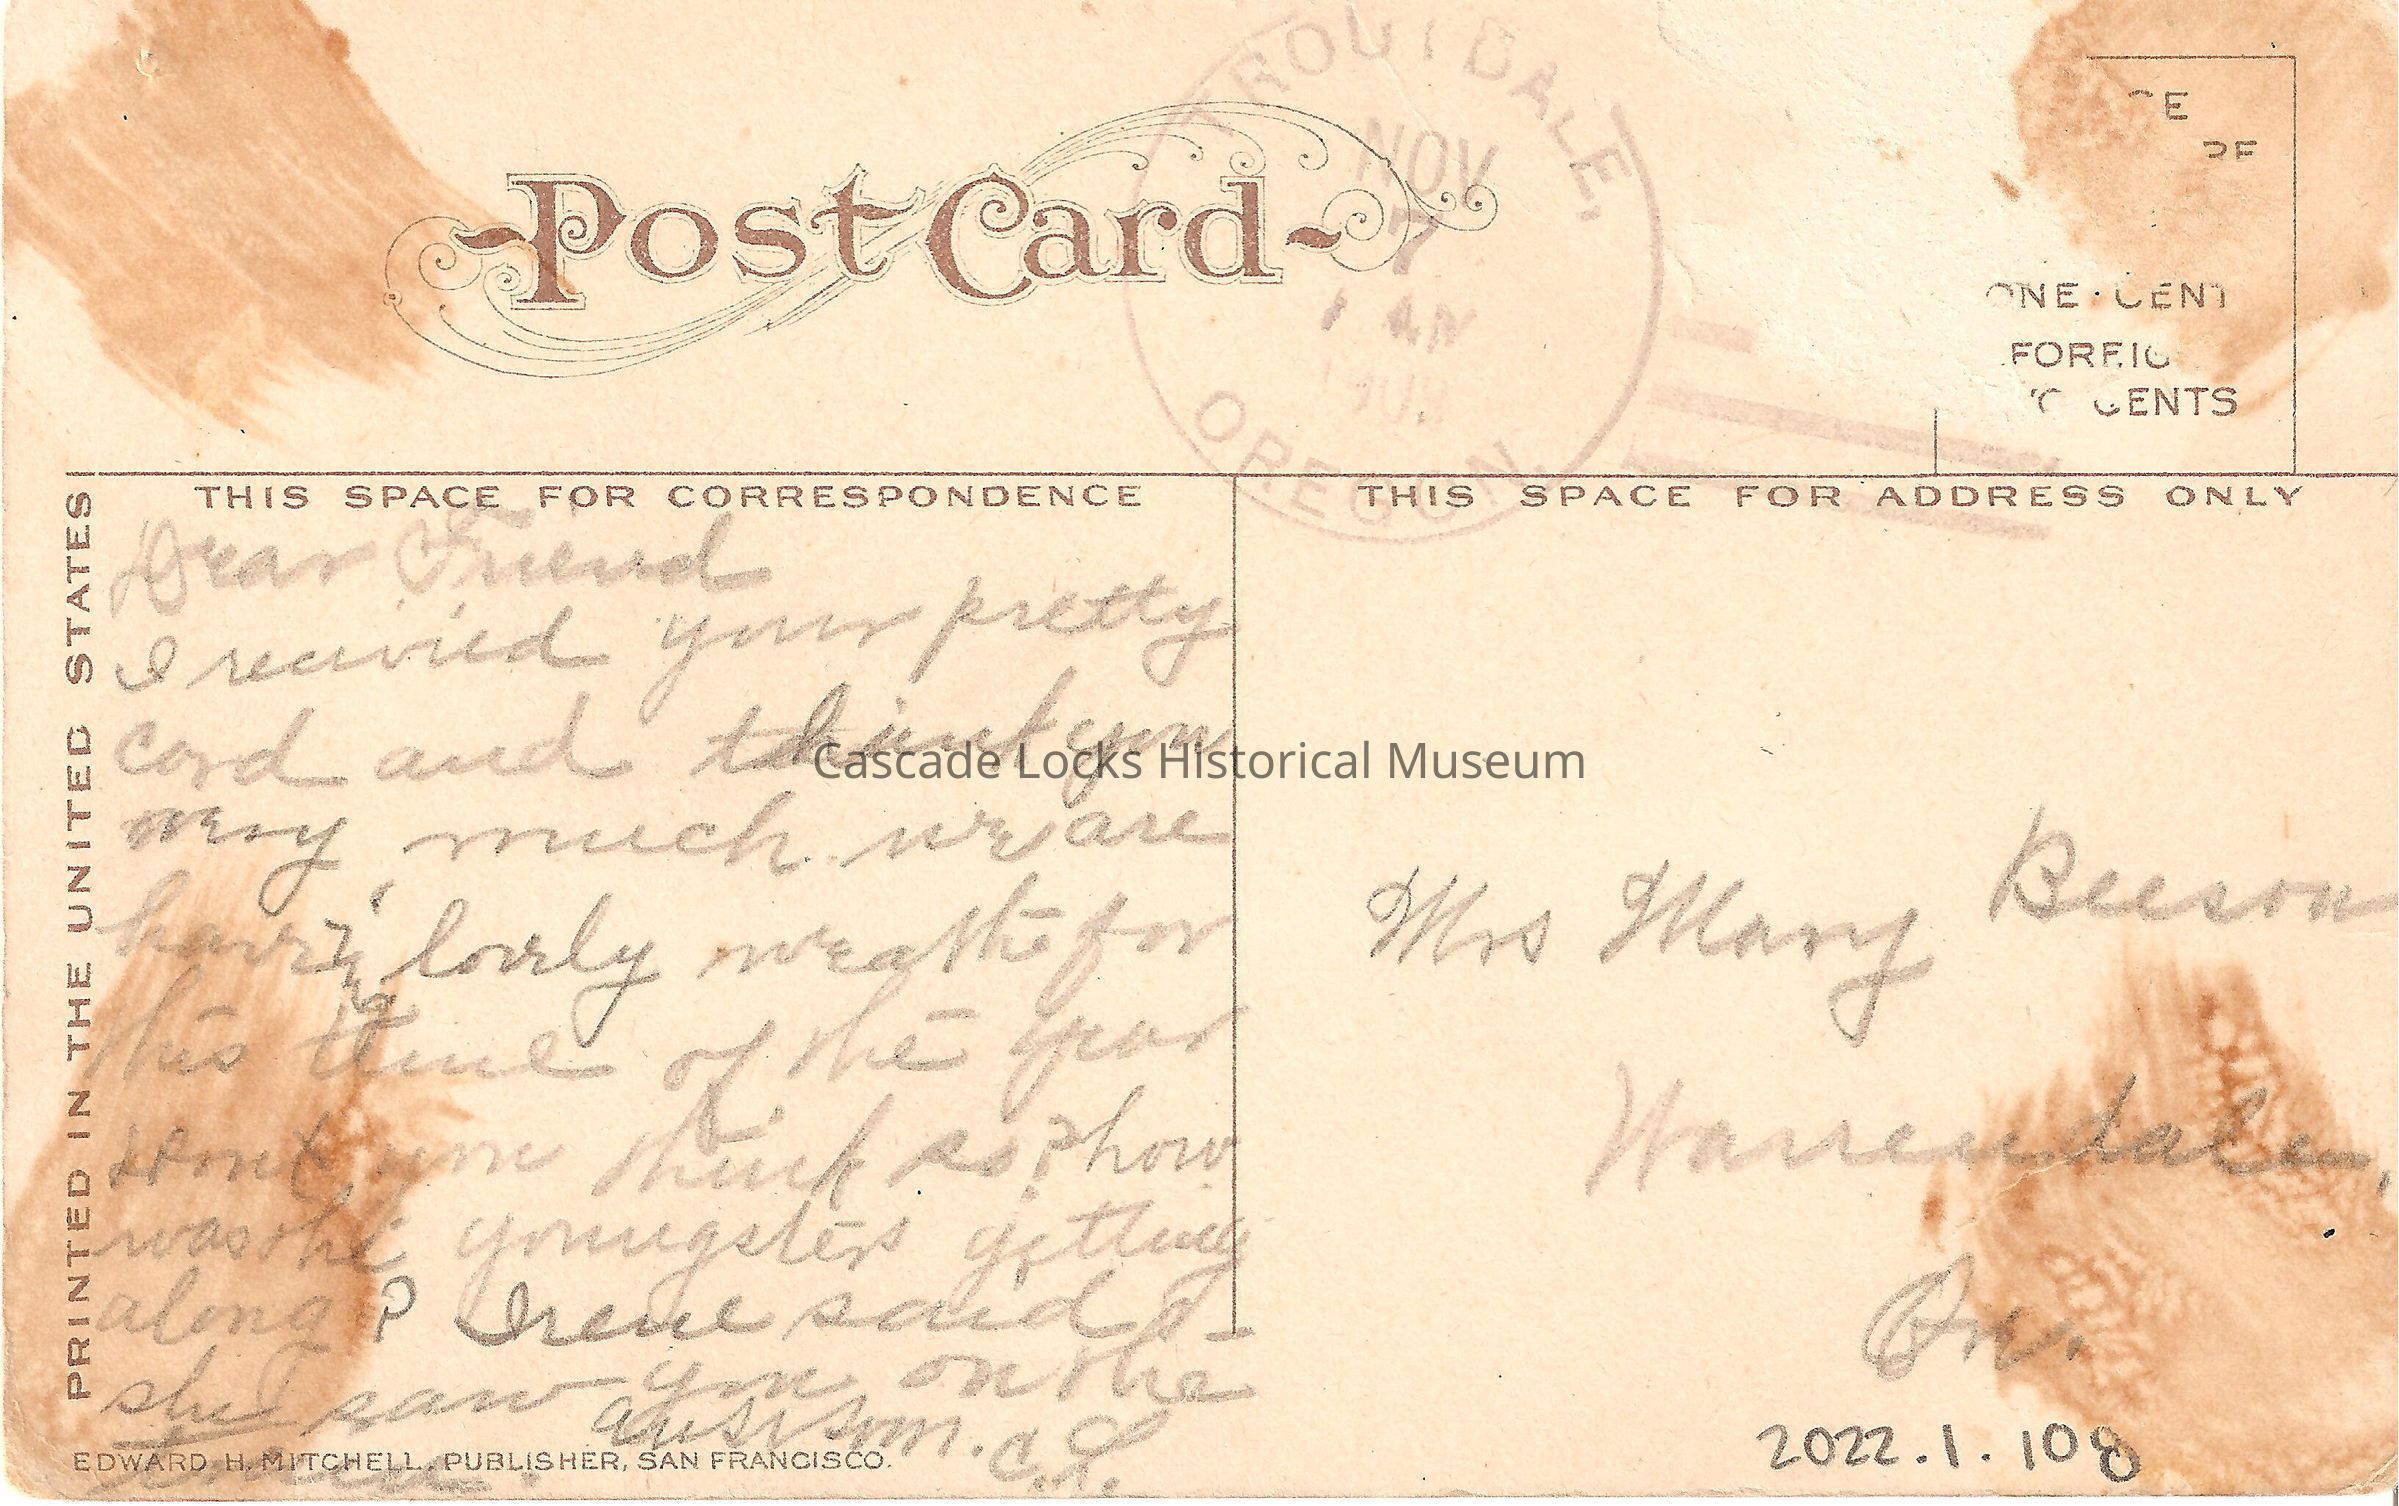 TROUTDALE,
NOV
7
OREGON.
Post Card
CE
ONE CENT
FOREIG
CENTS
THIS SPACE FOR CORRESPONDENCE
THIS SPACE FOR ADDRESS ONLY
PRINTED IN THE UNITED STATES
Dear Friend
I recivied your pretty
Card and thank you
very much. we are
having lovely weather for
this time of the year
dont you think so? how
was the youngsters getting
along? Irene said
she saw you on the
Cascade Locks Historical Museum
Mrs Mary Beeson
Warrendale,
Ore.
EDWARD H. MITCHELL, PUBLISHER, SAN FRANCISCO.
2022.1.108